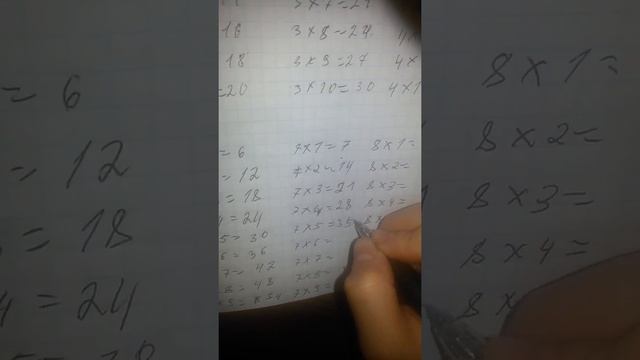 3 x 7 = 21
16 3 x 8 = 24 4 x
18 3 x 9 = 27 4 x
=20 3 x 10 = 30 4 x 1
= 6 7 x 1 = 7 8 x 1 =
= 12 7 x 2 = 14 8 x 2 =
= 18 7 x 3 = 21 8 x 3 =
4 = 24 7 x 4 = 28 8 x 4 =
5 = 30 7 x 5 = 35 8 x
6 = 36 7 x 6 =
7 = 42 7 x 7 =
8 = 48 7 x 8 =
9 = 54 7 x 9 =